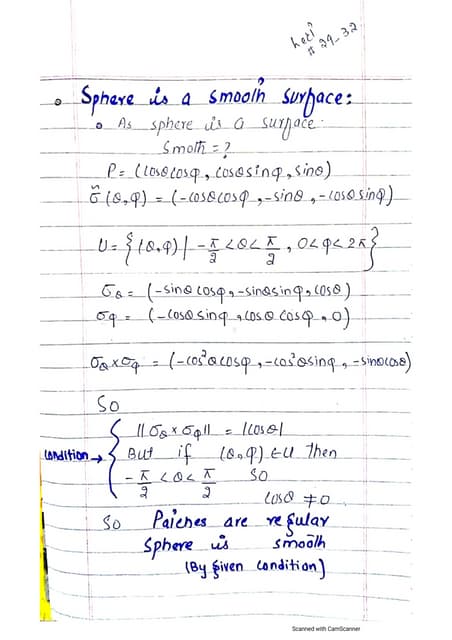 Lec#
# 29-32
Sphere is a smooth surface:
As sphere is a surface.
Smoth = ?
P = (cosθcosφ, cosθsinφ, sinθ)
σ̃(θ,φ) = (-cosθcosφ, -sinθ, -cosθsinφ)
U = {(θ,φ) | -π/2 < θ < π/2, 0 < φ < 2π}
σθ = (-sinθcosφ, -sinθsinφ, cosθ)
σφ = (-cosθsinφ, cosθcosφ, 0)
σθ×σφ = (-cos²θcosφ, -cos²θsinφ, -sinθcosθ)
So
||σθ×σφ|| = |cosθ|
condition → But if (θ,φ) ∈ U then
-π/2 < θ < π/2 so
cosθ ≠ 0
So Patches are regular
Sphere is smooth
(By given condition)
Scanned with CamScanner